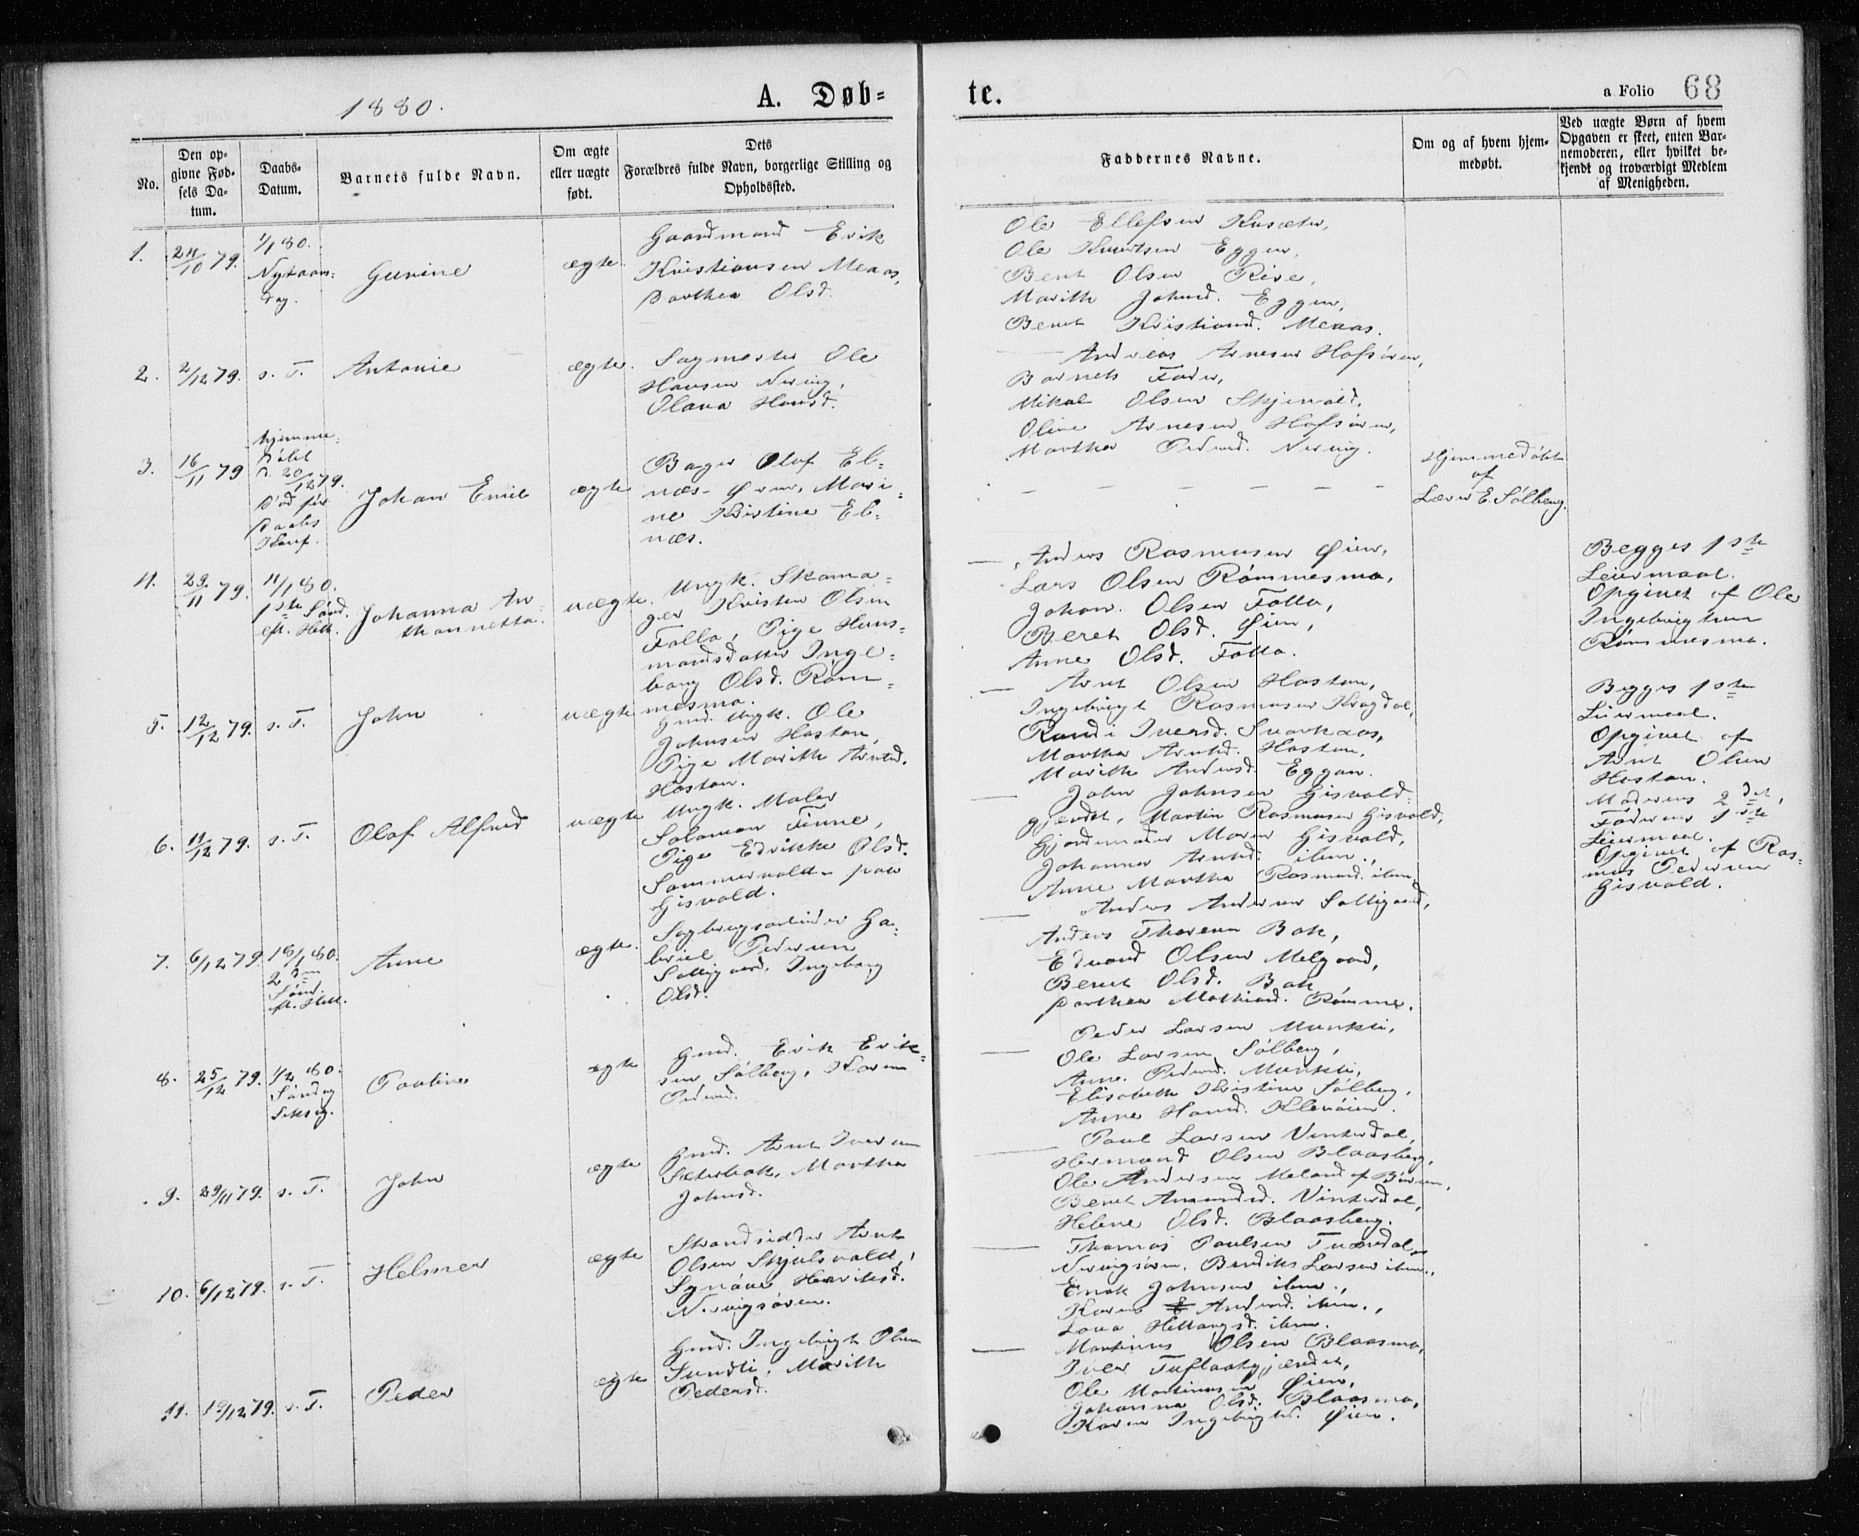 1880.
A. Døb-
te.
a Folio 68
No.
Den op-
givne Fød-
sels Da-
tum.
Daabs-
Datum.
Barnets fulde Navn.
Om ægte
eller uægte
født.
Dets
Forældres fulde Navn, borgerlige Stilling og
Opholdssted.
Faddernes Navne.
Om og af hvem hjem-
medøbt.
Ved uægte Børn af hvem
Opgaven er skeet, enten Bar-
nemoderen, eller hvilket be-
kjendt og troværdigt Medlem
af Menigheden.
1. 24/10 79. 1/1 80.
Nytaars-
dag.
Gurine
ægte.
Gaardmand Erik
Kristiansen Meaas,
Dorthea Olsd.
Ole Ellefsen
Ole Knudsen Eggen,
Bent Olsen Rise,
Marith Johnsd. Eggen,
Beret Kristiansd. Meaas.
2. 2/12 79. s. T. Antonie
ægte.
Sagmester Ole
Hansen Nervig,
Olava Hansd.
Andreas Arnesen Hofsøren,
Barnets Fader,
Mikal Olsen Skjervold,
Oline Arnesen Hofsøren,
Martha Pedersd. Nervig.
3. 16/11 79
hjemme-
døbt
d. 20/12 79.
Død før
Daabs
Konf.
Johan Emil
ægte
Bager Olaf El-
næs - Øren, Mari-
ne Kristine El-
næs.
— — — — — —
Hjemmedøbt
af
Lærer E. Sølberg.
4. 29/11 79. 11/1 80.
1ste Sønd.
eft. Hell.
Johanna An-
thonetta.
uægte.
Ungk. Skoma-
ger Kristen Olsen
Follo, Pige Huus-
mandsdatter Inge-
borg Olsd. Røm-
mesmo.
Anders Rasmussen Øien,
Lars Olsen Rømmesmo,
Johan Olsen Follo,
Beret Olsd. Øien,
Anne Olsd. Follo.
Begges 1ste
Leiermaal.
Opgivet af Ole
Ingebrigtsen
Rømmesmo.
5. 12/12 79. s. T. John
uægte
Gmd. Ungk. Ole
Johnsen Hoston,
Pige Marith Arntsd.
Hoston.
Arnt Olsen Hoston,
Ingebrigt Rasmussen Krogdal,
Randi Iversd. Svorkaas,
Martha Arntsd. Hoston,
Marith Andersd. Eggan.
Begges 1ste
Leiermaal.
Opgivet af
Arnt Olsen
Hoston.
6. 11/12 79. s. T. Olaf Alfred
uægte
Ungk. Maler
Salomon Finne,
Pige Edrikke Olsd.
Sommervold - paa
Gisvold.
John Johnsen Gisvold-
gjerdet, Martin Rasmussen Gisvold,
Gjordemoder Maren Gisvold,
Johanna Arntsd. ibm.,
Anne Martha Rasmusd. ibm.
Moderens 2det,
Faderens 1ste
Leiermaal.
Opgivet af Ras-
mus Pedersen
Gisvold.
7. 6/12 79. 18/1 80.
2den
Sønd.
eft. Hell.
Anne
ægte.
Sagbrugsarbeider Ga-
briel Pedersen
Soltigaard, Ingeborg
Olsd.
Anders Andersen Soltigaard,
Anders Thoresen Bak,
Edvard Olsen Melgaard,
Beret Olsd. Bak
Dorthea Mathiasd. Rømme.
8. 25/12 79. 1/2 80.
Søndag
Seksag.
Pauline
ægte
Gmd. Erik Erik-
sen Sølberg, Karen
Pedersd.
Peder Larsen Munkli,
Ole Larsen Sølberg,
Anne Pedersd. Munkli,
Elisabeth Kristine Sølberg,
Anne Hansd. Klevøien.
9. 29/11 79. s. T. John
ægte
Gmd. Arnt Iversen
Sæterbak, Martha
Johnsd.
Paul Larsen Vinterdal,
Hermand Olsen Blaasberg,
Ole Andersen Meland af Børsen,
Beret Amundsd. Vinterdal,
Helene Olsd. Blaasberg.
10. 6/12 79. s. T. Helmer
ægte
Strandsidder Arnt
Olsen Skjulsvold,
Synøve Henriksd.
Nervigsøren.
Thomas Paulsen
Nervigsøren. Bendik Larsen ibm.,
Enok Johnsen ibm.,
Karen Andersd. ibm.,
Lava ibm.
11. 19/12 79. s. T. Peder
ægte
Gmd. Ingebrigt Olsen
Sundli, Marith
Pedersd.
Martinus Olsen Blaasmo,
Iver
Ole Martinussen Øien,
Johanna Olsd. Blaasmo,
Karen Ingebrigtsd. Øien.